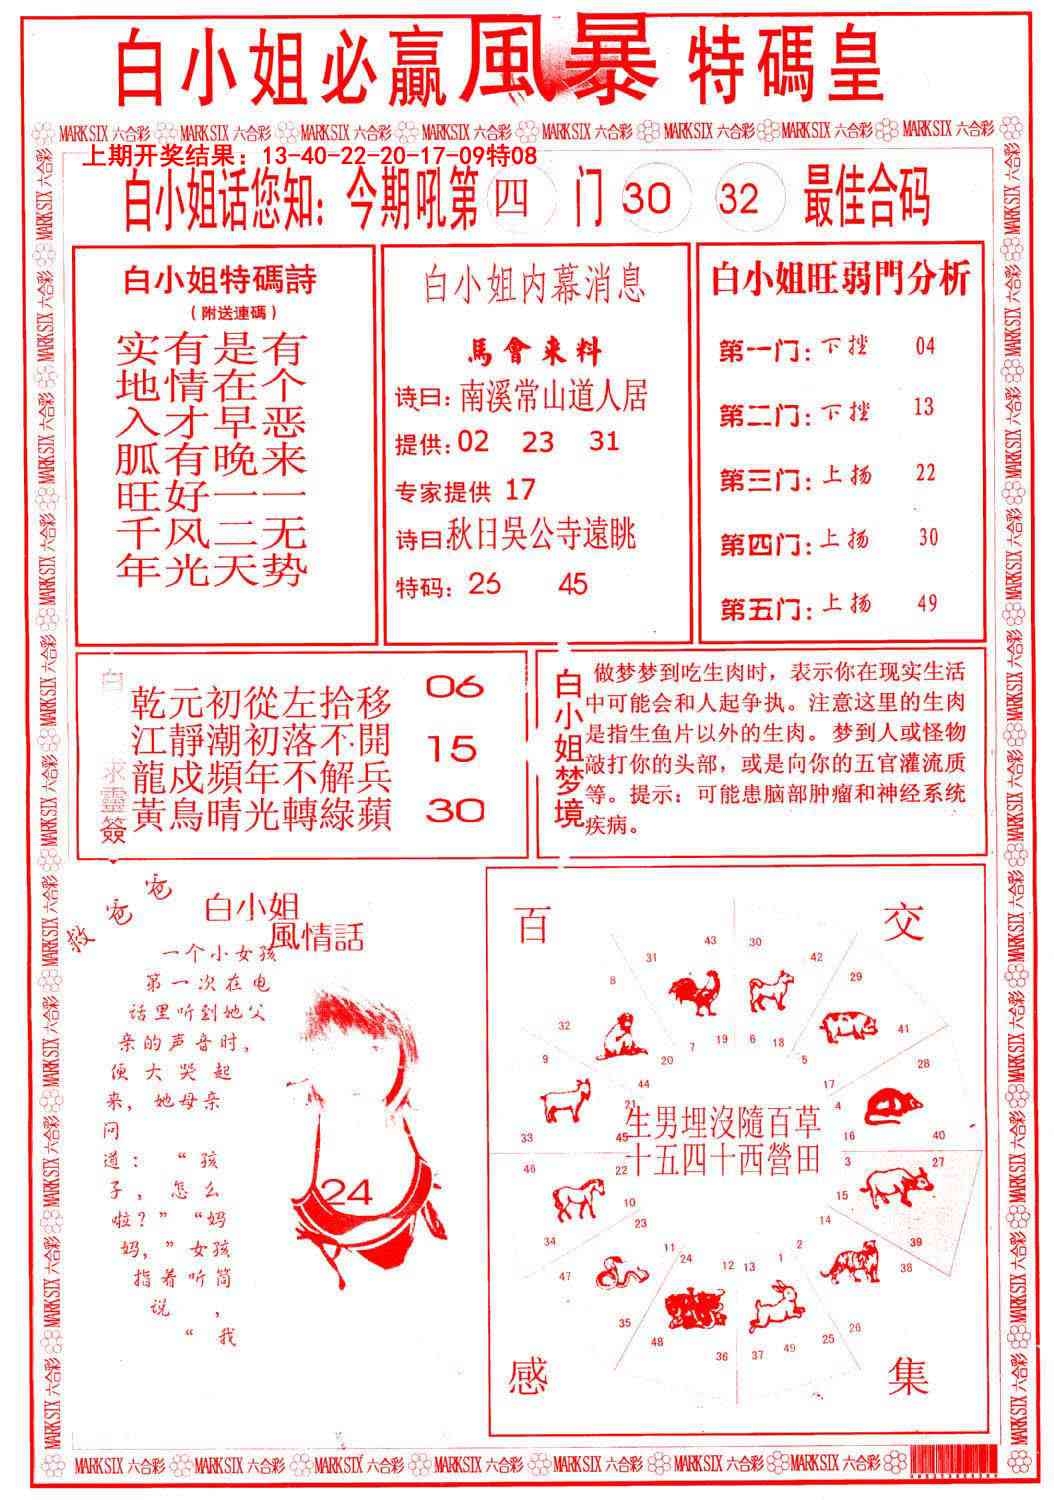 白小姐必贏風暴特碼皇
MARK SIX 六合彩 MARK SIX 六合彩 MARK SIX 六合彩 MARK SIX 六合彩 MARK SIX 六合彩 MARK SIX 六合彩 MARK SIX 六合彩 MARK SIX 六合彩
上期开奖结果：13-40-22-20-17-09特08
白小姐话您知：今期吼第四门 30 32 最佳合码
白小姐特碼詩
（附送連碼）
实有是有
地情在个
入才早恶
胍有晚来
旺好一一
千风二无
年光天势
白小姐内幕消息
馬會来料
诗曰：南溪常山道人居
提供：02 23 31
专家提供 17
诗曰：秋日吳公寺遠眺
特码：26 45
白小姐旺弱門分析
第一门：下挫 04
第二门：下挫 13
第三门：上扬 22
第四门：上扬 30
第五门：上扬 49
白 求靈簽
乾元初從左拾移 06
江靜潮初落不開 15
龍戍頻年不解兵
黃鳥晴光轉綠蘋 30
白小姐梦境
做梦梦到吃生肉时，表示你在现实生活
中可能会和人起争执。注意这里的生肉
是指生鱼片以外的生肉。梦到人或怪物
敲打你的头部，或是向你的五官灌流质
等。提示：可能患脑部肿瘤和神经系统
疾病。
救爸爸
白小姐
風情話
一个小女孩
第一次在电
话里听到她父
亲的声音时，
便大哭起
来，她母亲
问
道：“孩
子，怎么
啦？”“妈
妈，”女孩
指着听筒
说，
“我
24
百 交
43 30
31 42
8 29
32 41
7 19 6 18
20 5
9 28
44 17
21 4
生男埋沒隨百草
33 45 16 40
十五四十西營田
46 22 3 27
10 15
34 23 14 39
11 24 12 13 1 2
47 38
35 26
48 25
36 37 49
感 集
MARK SIX 六合彩 MARK SIX 六合彩 MARK SIX 六合彩 MARK SIX 六合彩 MARK SIX 六合彩 MARK SIX 六合彩 MARK SIX 六合彩